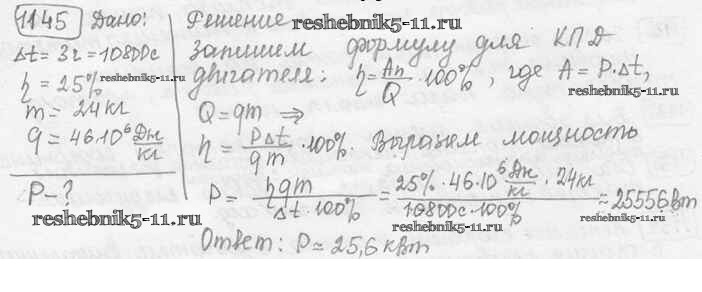 1145 Дано:
Δt = 3 ч = 10800 с
η = 25%
m = 24 кг
q = 46·10⁶ Дж/кг
P - ?
Решение
запишем формулу для КПД
двигателя: η = Aп/Q · 100%, где A = P·Δt,
Q = qm ⇒
η = PΔt/qm · 100%. Выразим мощность
P = ηqm/Δt·100% = 25%·46·10⁶ Дж/кг · 24 кг/10800с·100% ≈ 25556 Вт
Ответ: P ≃ 25,6 кВт
reshebnik5-11.ru
reshebnik5-11.ru
reshebnik5-11.ru
reshebnik5-11.ru
reshebnik5-11.ru
reshebnik5-11.ru